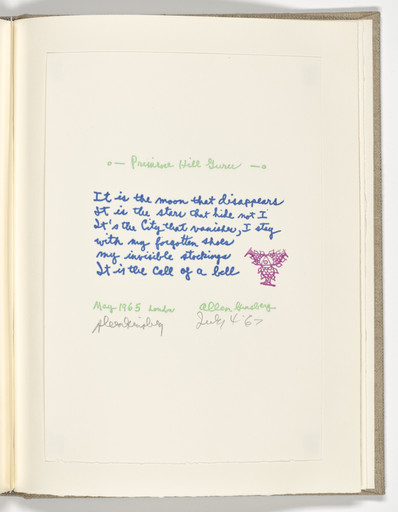 Primrose Hill Guru
It is the moon that disappears
It is the stars that hide not I
It's the City that vanishes, I stay
with my forgotten shoes
my invisible stockings
It is the call of a bell
May 1965 London
Allen Ginsberg
Allen Ginsberg
July 4 '67